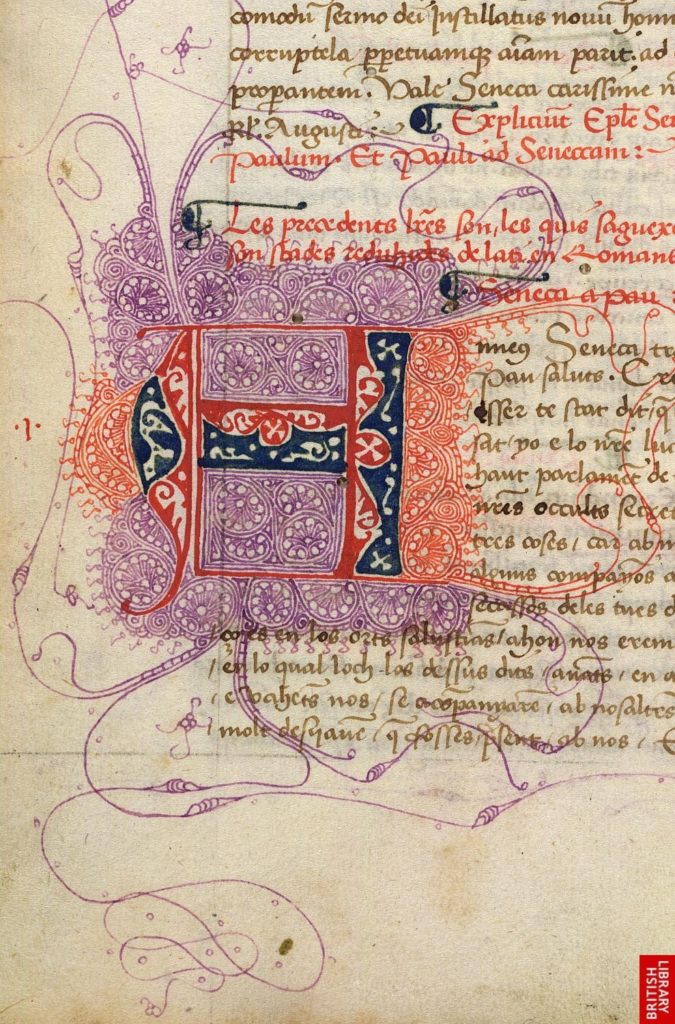 comodū sermo dei instillatus novū hom
corruptela ꝑpetuamqz aīam parit. ad
properantem. Vale Seneca carissime n
Kł. Augusti:
¶ Expliciūt Eplē Se
Paulum. Et Pauli ad Senecam:
¶ Les precedents lrēs son, les quis saguexe
son stades reduhides de latī en Romans
¶ Seneca a pau:
.1.
A
nneus Seneca tr
Pau saluts. Cre
esser te stat dit, q
sat, yo e lo nrē luc
haut parlamēt de
nrēs occults secret
tres coses, car ab
alguns companyos
secassos deles tues d
ço es en los orts salustiās, ahon nos
en lo qual loch los dessus dits, en a
e vehets nos, se acōpanyarē, ab nosaltres
molt desijauē, q̄ fosses, p̄sent, ab nos, E
BRITISH
LIBRARY